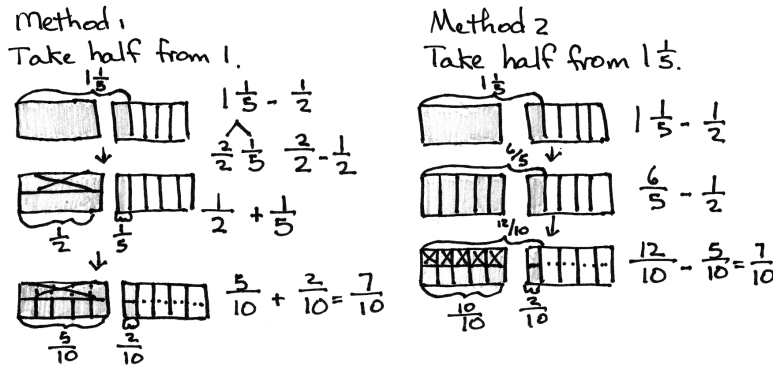 Method 1
Take half from 1.
1 1/5
1 1/5 - 1/2
2/2 1/5 2/2 - 1/2
1/2 1/5
1/2 + 1/5
5/10 2/10
5/10 + 2/10 = 7/10
Method 2
Take half from 1 1/5.
1 1/5
1 1/5 - 1/2
6/5
6/5 - 1/2
12/10
12/10 - 5/10 = 7/10
10/10 2/10